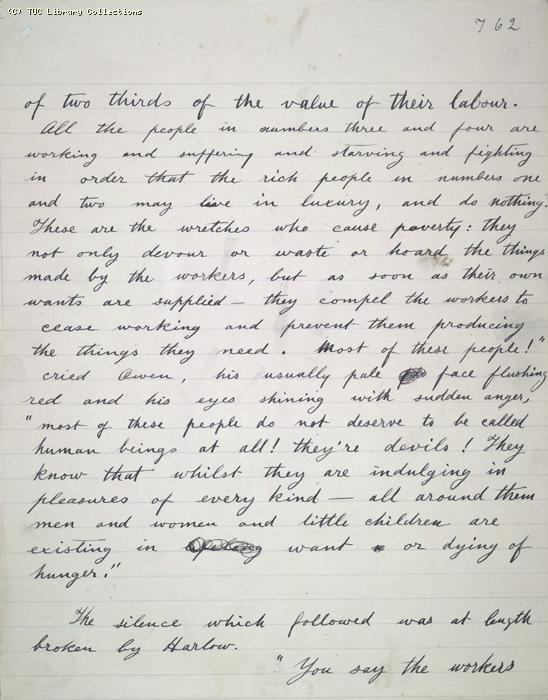 (C) TUC Library Collections
762
of two thirds of the value of their labour.
All the people in numbers three and four are
working and suffering and starving and fighting
in order that the rich people in numbers one
and two may live in luxury, and do nothing.
These are the wretches who cause poverty: they
not only devour or waste or hoard the things
made by the workers, but as soon as their own
wants are supplied — they compel the workers to
cease working and prevent them producing
the things they need. Most of these people!"
cried Owen, his usually pale face flushing
red and his eyes shining with sudden anger,
"most of these people do not deserve to be called
human beings at all! they're devils! They
know that whilst they are indulging in
pleasures of every kind — all around them
men and women and little children are
existing in want or dying of
hunger."
The silence which followed was at length
broken by Harlow.
"You say the workers